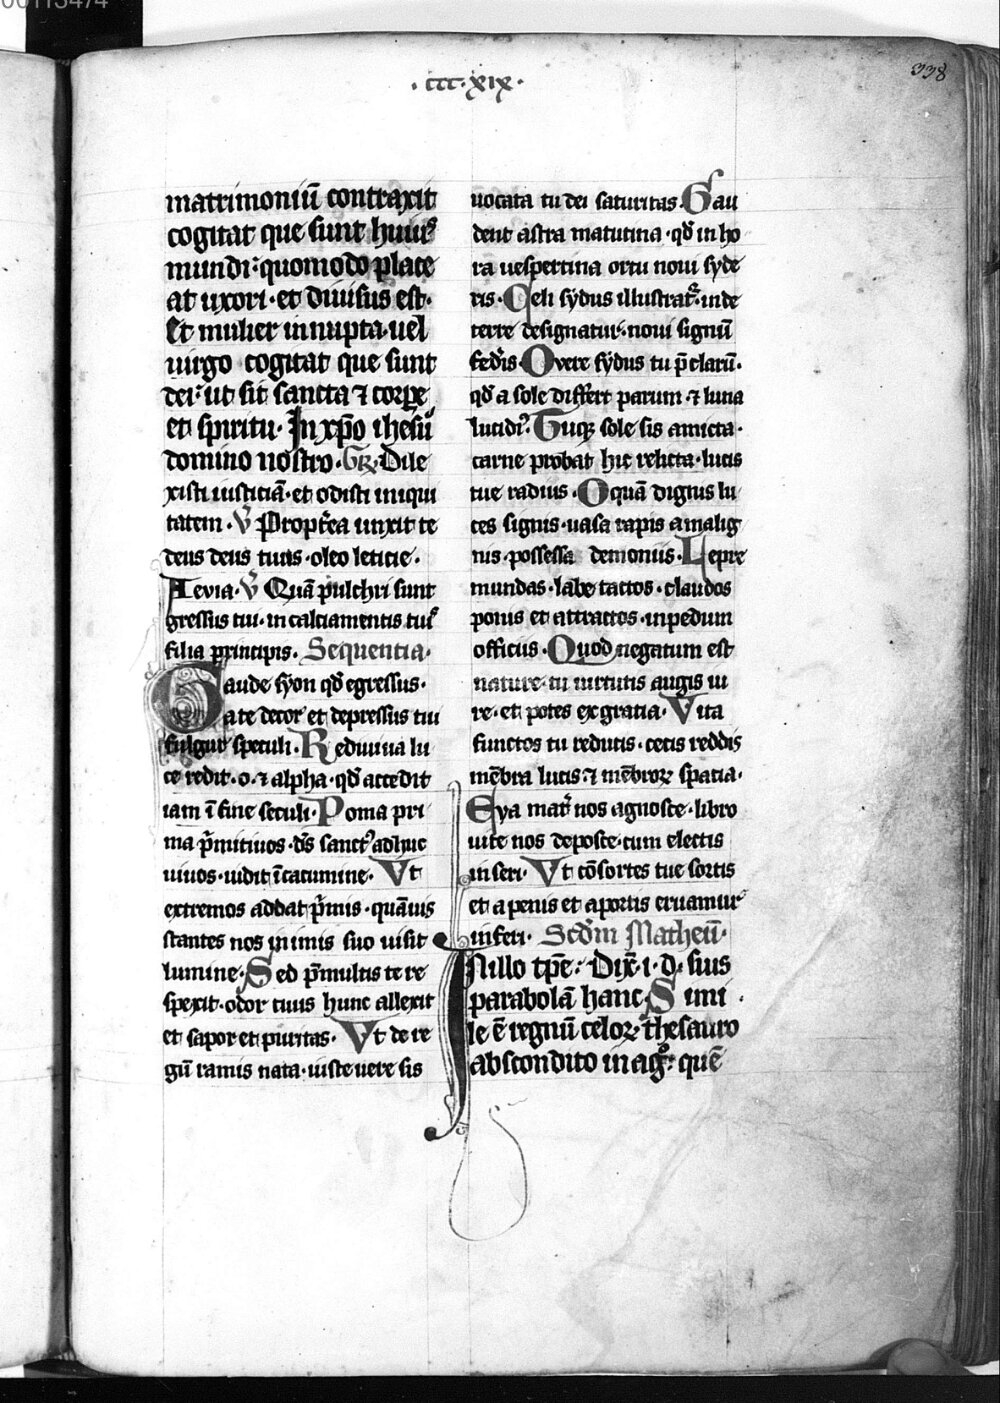 00113474
338
· ccc · xix ·
matrimoniū contraxit
cogitat que sunt huius
mundi: quomodo place
at uxori · et diuisus est ·
Et mulier innupta · uel
uirgo cogitat que sunt
dei: ut sit sancta ⁊ corpe
et spiritu · In xp̄o ihesū
domino nostro · Gr̄ · Dile
xisti iusticiā · et odisti iniqui
tatem · V̄ Propt̄ea unxit te
deus deus tuus · oleo leticie ·
Aeuia · V̄ Quā pulchri sunt
gressus tui · in calciamentis tuis
filia principis · Sequentia ·
Gaude syon qd̄ egressus ·
a te decor et depressus tui
fulgur speculi · Rediuiua lu
ce redit · o · ⁊ alpha · qd̄ accedit
iam ī fine seculi · Poma pri
ma p̄mitiuos · ds̄ sanct᾽ adhuc
uiuos · uidit ī cacumine · Vt
extremos addat p̄mis · quāuis
stantes nos in imis suo uisit
lumine · Sed p̄ multis te re
spexit · odor tuus hunc allexit
et sapor et puritas · Vt de re
gū ramis nata · iuste uere sis
uocata tu dei saturitas · Gau
dent astra matutina · qd̄ in ho
ra uespertina ortu noui syde
ris · Celi sydus illustrat᷑ · inde
terre designatur · noui signū
fed̄is · O vere sydus tu p̄clarū ·
qd̄ a sole differt parum · ⁊ luna
lucidi᷑ · Tuq; sole sis amicta ·
carne probat hic relicta · lucis
tue radius · O quā dignis lu
ces signis · uasa rapis a malig
nis · possessa demoniis · Lepre
mundas · labe tactos · claudos
ponis et attractos · in pedum
officiis · Quod negatum est
nature · tu uirtutis augis iu
re · et potes ex gratia · Vita
functos tu reducis · cecis reddis
mēbra lucis · ⁊ mēbroꝝ spacia ·
Eya mat᷑ nos agnosce · libro
uite nos deposce · cum electis
inseri · Vt cōsortes tue sortis
et a penis et a portis eruamur
inferi · Scd̄m Matheū ·
In illo tp̄e: Dix̄ · i · d · suis
parabolā hanc · Simi
le ē regnū celoꝝ thesauro
abscondito in agº: quē